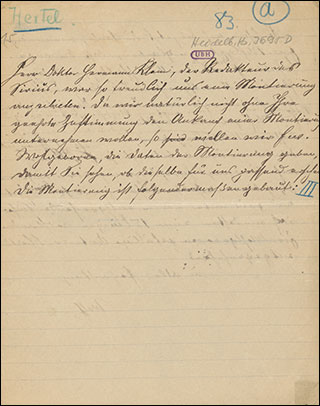 Hertel
83.
a
Heidelb. Hs. 3695 D
UBH
Herr Doktor Hermann Klein, der Redakteur des
Sirius, war so freundlich uns eine Montierung
anzubieten. Da wir natürlich nicht ohne Ihre
geehrte Zustimmung den Ankauf einer Montierung
unternehmen wollen, so sind wollen wir Euer
Wohlgeboren, die Daten der Montierung geben,
damit Sie sehen, ob dieselbe für uns passend
Die Montierung ist folgendermaßen gebaut:
III